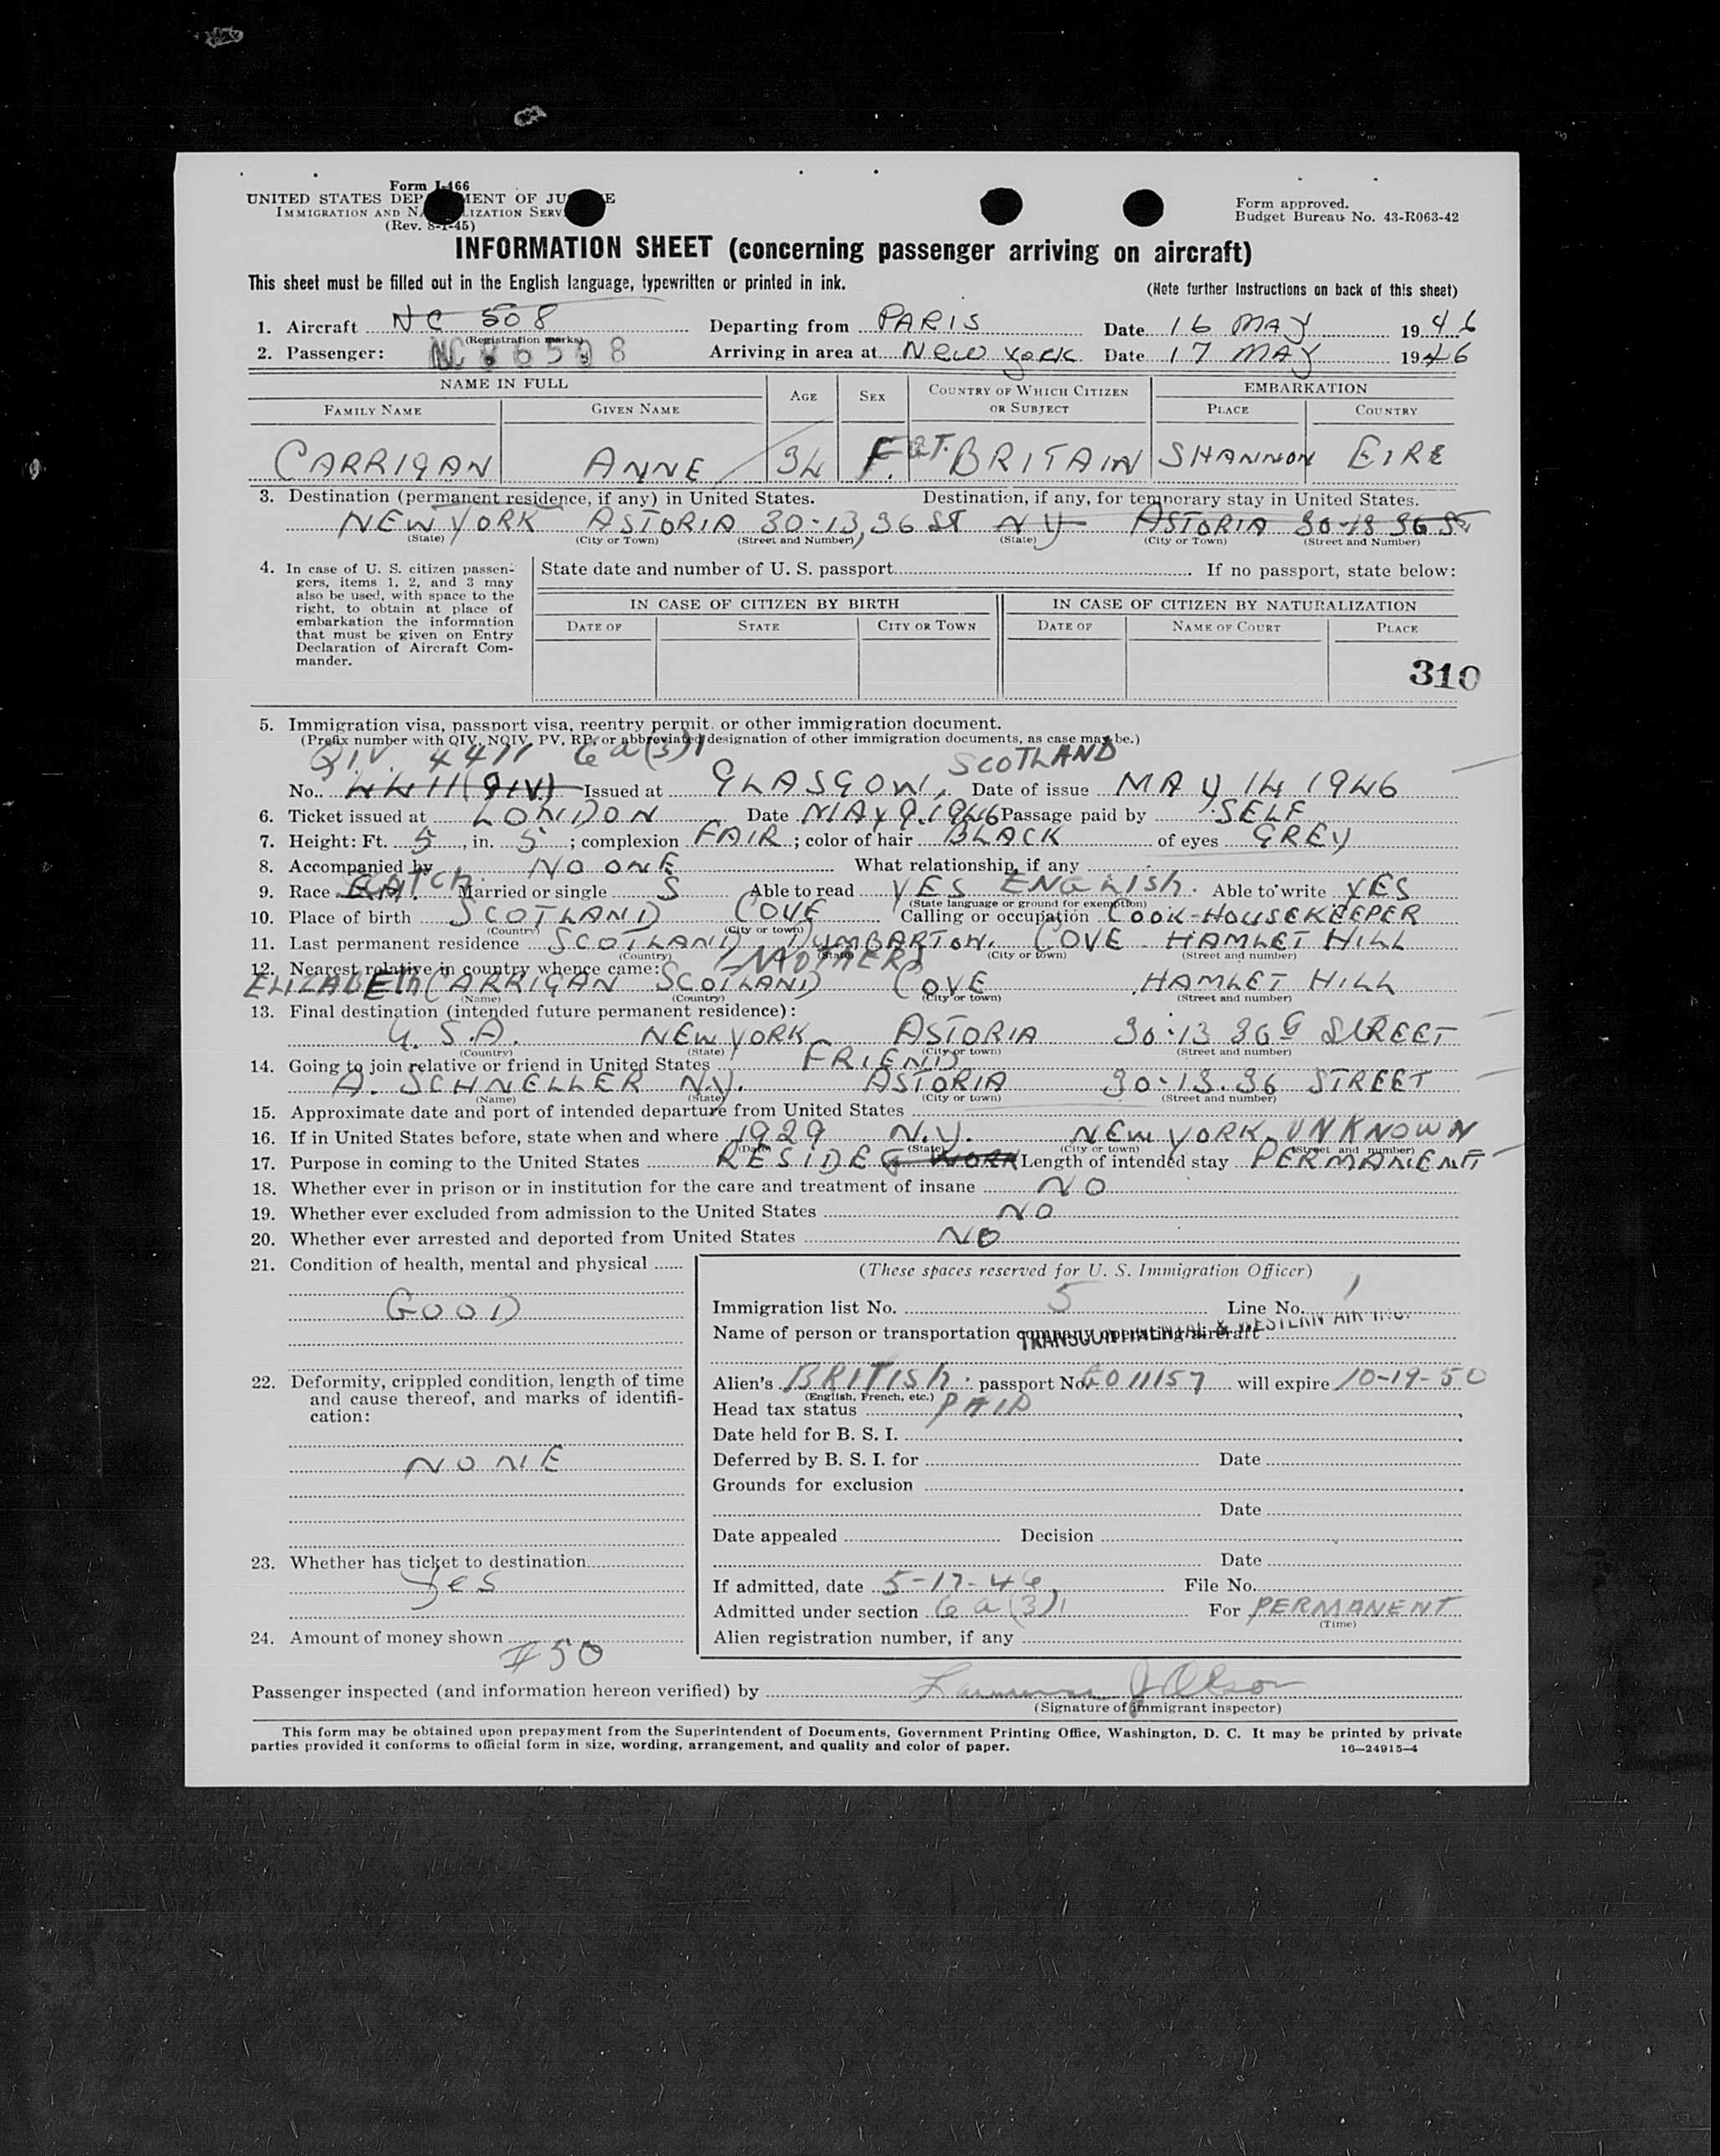 Form I-166
UNITED STATES DEPARTMENT OF JUSTICE
IMMIGRATION AND NATURALIZATION SERVICE
(Rev. 8-1-45)
Form approved.
Budget Bureau No. 43-R063-42
INFORMATION SHEET (concerning passenger arriving on aircraft)
This sheet must be filled out in the English language, typewritten or printed in ink.
(Note further instructions on back of this sheet)
1. Aircraft NC 508 Departing from PARIS Date 16 MAY 1946
(Registration marks)
2. Passenger: NC 86508 Arriving in area at New York Date 17 MAY 1946
NAME IN FULL AGE SEX COUNTRY OF WHICH CITIZEN OR SUBJECT EMBARKATION
FAMILY NAME GIVEN NAME PLACE COUNTRY
CARRIGAN ANNE 34 F. GT. BRITAIN SHANNON EIRE
3. Destination (permanent residence, if any) in United States. Destination, if any, for temporary stay in United States.
NEW YORK ASTORIA 30-13, 36 ST N Y ASTORIA 30-13 36 ST
(State) (City or Town) (Street and Number) (State) (City or Town) (Street and Number)
4. In case of U. S. citizen passengers, items 1, 2, and 3 may also be used, with space to the right, to obtain at place of embarkation the information that must be given on Entry Declaration of Aircraft Commander.
State date and number of U. S. passport If no passport, state below:
IN CASE OF CITIZEN BY BIRTH IN CASE OF CITIZEN BY NATURALIZATION
DATE OF STATE CITY OR TOWN DATE OF NAME OF COURT PLACE
310
5. Immigration visa, passport visa, reentry permit, or other immigration document.
(Prefix number with QIV, NQIV, PV, RP, or abbreviated designation of other immigration documents, as case may be.)
QIV. 4411 6a(3)1 SCOTLAND
No. 4411 (QIV) Issued at GLASGOW, Date of issue MAY 14 1946
6. Ticket issued at LONDON Date MAY 9. 1946 Passage paid by SELF
7. Height: Ft. 5, in. 5; complexion FAIR; color of hair BLACK of eyes GREY
8. Accompanied by NO ONE What relationship, if any
9. Race SCOTCH. Married or single S Able to read YES ENGLISH. Able to write YES
(State language or ground for exemption)
10. Place of birth SCOTLAND COVE Calling or occupation COOK-HOUSEKEEPER
(Country) (City or town)
11. Last permanent residence SCOTLAND DUMBARTON. COVE HAMLET HILL
(Country) (State) (City or town) (Street and number)
12. Nearest relative in country whence came: (MOTHER)
ELIZABETH CARRIGAN SCOTLAND COVE HAMLET HILL
(Name) (Country) (City or town) (Street and number)
13. Final destination (intended future permanent residence):
U.S.A. NEW YORK ASTORIA 30-13 36 STREET
(Country) (State) (City or town) (Street and number)
14. Going to join relative or friend in United States FRIEND
A. SCHNELLER N.Y. ASTORIA 30-13. 36 STREET
(Name) (State) (City or town) (Street and number)
15. Approximate date and port of intended departure from United States
16. If in United States before, state when and where 1929 N.Y. NEW YORK UNKNOWN
(Date) (State) (City or town) (Street and number)
17. Purpose in coming to the United States RESIDE & WORK Length of intended stay PERMANENT
18. Whether ever in prison or in institution for the care and treatment of insane NO
19. Whether ever excluded from admission to the United States NO
20. Whether ever arrested and deported from United States NO
21. Condition of health, mental and physical
GOOD
22. Deformity, crippled condition, length of time and cause thereof, and marks of identification:
NONE
23. Whether has ticket to destination
Yes
24. Amount of money shown
$50
(These spaces reserved for U. S. Immigration Officer)
Immigration list No. 5 Line No. 1
Name of person or transportation company operating aircraft TRANSCONTINENTAL & WESTERN AIR INC.
Alien's BRITISH passport No. 011157 will expire 10-19-50
(English, French, etc.)
Head tax status PAID
Date held for B. S. I.
Deferred by B. S. I. for Date
Grounds for exclusion
Date
Date appealed Decision
Date
If admitted, date 5-17-46, File No.
Admitted under section 6a(3)1 For PERMANENT
(Time)
Alien registration number, if any
Passenger inspected (and information hereon verified) by Olson
(Signature of immigrant inspector)
This form may be obtained upon prepayment from the Superintendent of Documents, Government Printing Office, Washington, D. C. It may be printed by private
parties provided it conforms to official form in size, wording, arrangement, and quality and color of paper.
16—24915-4